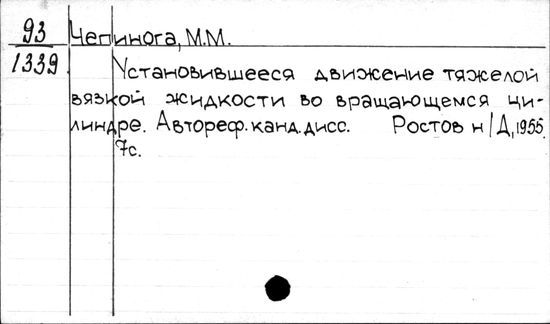 93 Чепинога, М.М.
1339 Установившееся движение тяжелой
вязкой жидкости во вращающемся ци-
линдре. Автореф. канд. дисс. Ростов н/Д, 1955
7с.